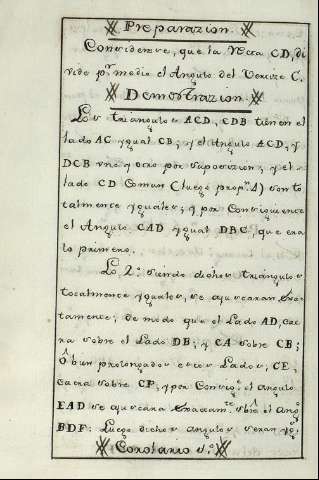 Preparazion.
Considerese, que la recta CD, di
vide pr. medio el Angulo del Vertize C.
Demostrazion.
Los triangulos ACD, CDB tienen el
lado AC ygual CB; y el Angulo ACD, y
DCB vno y otro por suposizion; y el
lado CD Comun (luego propn. 4) son to
talmente yguales; y por Consiguiente
el Angulo CAD ygual DBC, que era
lo primero.
Lo 2º. siendo dichos triangulos
totalmente yguales, se ajustaran exac
tamente; de modo que el Lado AD, cae
ra sobre el Lado DB; y CA sobre CB;
O bien prolongados estos Lados, CE,
caera sobre CF, y por Consigte. el angulo
EAD se ajustara exactamte. sbre. el angº
BDF: Luego dichos angulos seran ygs.
Corolario 1º.